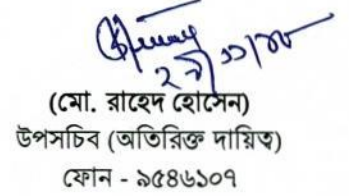 (মো. রাহেদ হোসেন)
উপসচিব (অতিরিক্ত দায়িত্ব)
ফোন - ৯৫৪৬১০৭